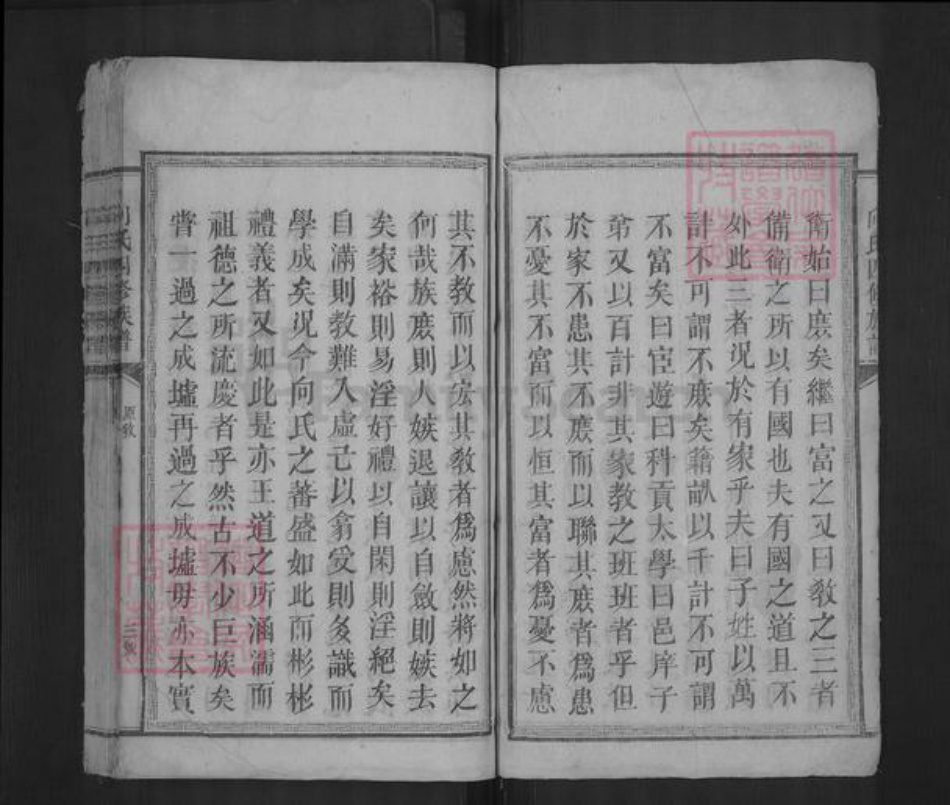 衛始曰庶矣繼曰富之又曰教之三者
備衛之所以有國也夫有國之道且不
外此三者況於有家乎夫曰子姓以萬
計不可謂不庶矣籍畝以千計不可謂
不富矣曰宦遊曰科貢太學曰邑庠子
弟又以百計非其家教之班班者乎但
於家不患其不庶而以聯其庶者爲患
不憂其不富而以恒其富者爲憂不慮
其不教而以宏其教者爲慮然將如之
何哉族庶則人嫉退讓以自斂則嫉去
矣家裕則易淫好禮以自閑則淫絕矣
自滿則教難入虛己以翕受則多識而
學成矣況今向氏之蕃盛如此而彬彬
禮義者又如此是亦王道之所涵濡而
祖德之所流慶者乎然古不少巨族矣
嘗一過之成墟再過之成墟毋亦本實
向氏四修族譜
原敘